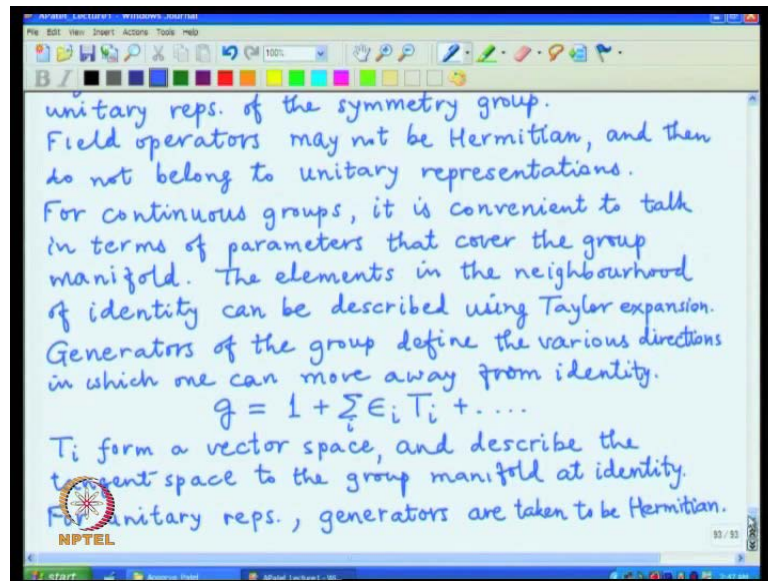 APatel_Lecture1 - Windows Journal
File Edit View Insert Actions Tools Help
100%
B I
unitary reps. of the symmetry group.
Field operators may not be Hermitian, and then
do not belong to unitary representations.
For continuous groups, it is convenient to talk
in terms of parameters that cover the group
manifold. The elements in the neighbourhood
of identity can be described using Taylor expansion.
Generators of the group define the various directions
in which one can move away from identity.
g = 1 + Σ_i ϵ_i T_i + ....
T_i form a vector space, and describe the
tangent space to the group manifold at identity.
For unitary reps., generators are taken to be Hermitian.
NPTEL
93 / 93
start
APatel_Lecture1 - Wi...